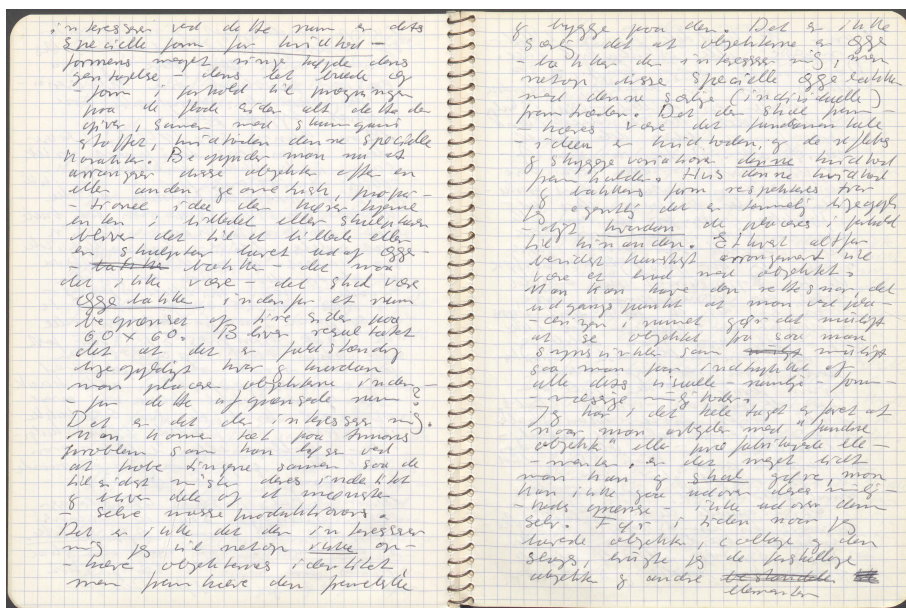 interesserer ved dette rum er dets
specielle form for hvidhed –
formens meget ringe højde dens
gentagelse – dens let buede og
– form i forhold til prægningen
paa de flade sider alt dette der
giver, samen med skumgumi
stoffet, hvidheden denne specielle
karakter. Begynder man nu at
arrangere disse objekter efter en
eller anden geometrisk, propor-
– tionel idee der hører hjemme
enten i billedet eller skulpturen
bliver det til et billede eller
en skulptur lavet ud af ægge-
– bakker – det maa
det ikke være – det skal være
æggebakker indenfor et rum
begrænset af fire sider paa
60 x 60. Bliver resultatet
det at det er fuldstændig
ligegyldigt hvor og hvordan
man placere objekterne inden-
– for dette afgrænsede rum?
Det er det der interesserer mig.
Man kommer tæt paa Armans
problem som han løser ved
at hobe tingene samen saa de
til sidst mister deres indetitet
og bliver dele af et mønster
– selve masseproduktionens.
Det er ikke det der interesserer
mig jeg vil netop ikke op-
– hæve objekternes identitet,
men fremhæve den
og bygge paa den. Det er ikke
særlig det at objekterne er ægge
– bakker der interesserer mig, men
netop disse specielle ægge bakker
med denne særlige (individuelle)
fremtræden. Det der skal frem-
– hæves være det fundamentale
– ideen er hvidheden, og de reflekser
og skygge variationer denne hvidhed
fremkalder. Hvis denne hvidhed
og bakkens form respekteres tror
jeg egentlig det er temmelig ligegyl-
– digt hvordan de placeres i forhold
til hinanden. Ethvert altfor
bevidst kunstigt arrangement vil
være et brud med objektet.
Man kan have den rettesnor, det
udgangspunkt at man ved pla-
– ceringen i rummet gør det muligt
at se objektet fra saa man
synsvinkler som muligt
saa man faar indtrykket af
alle dets visuelle – – form-
– mæssige muligheder.
Jeg har i det hele taget erfaret at
naar man arbejder med "fundne
objekter" eller præfabrikerede ele-
– menter, er det meget lidt
man kan og skal gøre, man
kan ikke gaa udover deres mulig-
– heds grænse – ikke udover dem
selv. Før i tiden naar jeg
lavede objekter, collage og den
slags, brugte jeg de forskellige
objekter og andre
elementer